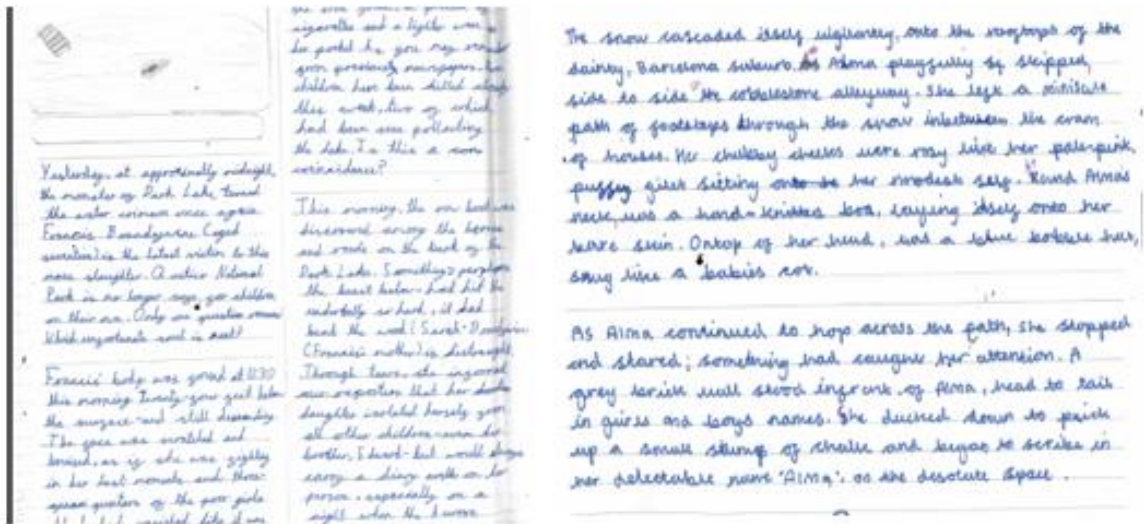 Yesterday, at approximally midnight,
the monster of Dark Lake, turned
the water crimson once again.
Francis
is the latest victim to this
mass slaughter. National
Park is no longer safe for children
on their own. Only one question remains
Which unfortunate soul is next?
Francis' body was found at 11:30
this morning twenty-four feet below
the surface - and still descending
The face was scratched and
bruised, as if she was fighting
in her last moments and three-
quarters of the poor girls
cigarettes and a lighter were in
her pocket. As you may
from previously newspapers,
children have been killed
this week, two of which
had been seen polluting
the lake. Is this a
coincidence?
This morning, the row boat was
discovered among the
and reeds on the bank of the
Dark Lake. Something - perhaps
the beast below - had hit the
so hard, it had
bent the wood. (Sarah
(Francis' mother) is distraught.
Through tears, she informed
our reporters that her
daughter isolated herself from
all other children - even her
brother, Edward - but would always
carry a on her
person, especially on a
night when the
The snow cascaded itself vigilantly, onto the rooftops of the
dainty, Barcelona suburb. As Alma playfully skipped
side to side the cobblestone alleyway. She left a
path of footsteps through the snow inbetween the cram
of houses. Her chubby cheeks were rosy like her pale-pink,
puffy gilet sitting onto her modest self. Round Alma's
neck, was a hand-knitted boa, laying itself onto her
bare skin. Ontop of her head, was a blue bobble hat,
snug like a babies cot.
As Alma continued to hop across the path, she stopped
and stared; something had caught her attention. A
grey brick wall stood infront of Alma, head to tail
in girls and boys names. She ducked down to pick
up a small stump of chalk and began to scribe in
her delectable name 'Alma', on the desolate space.